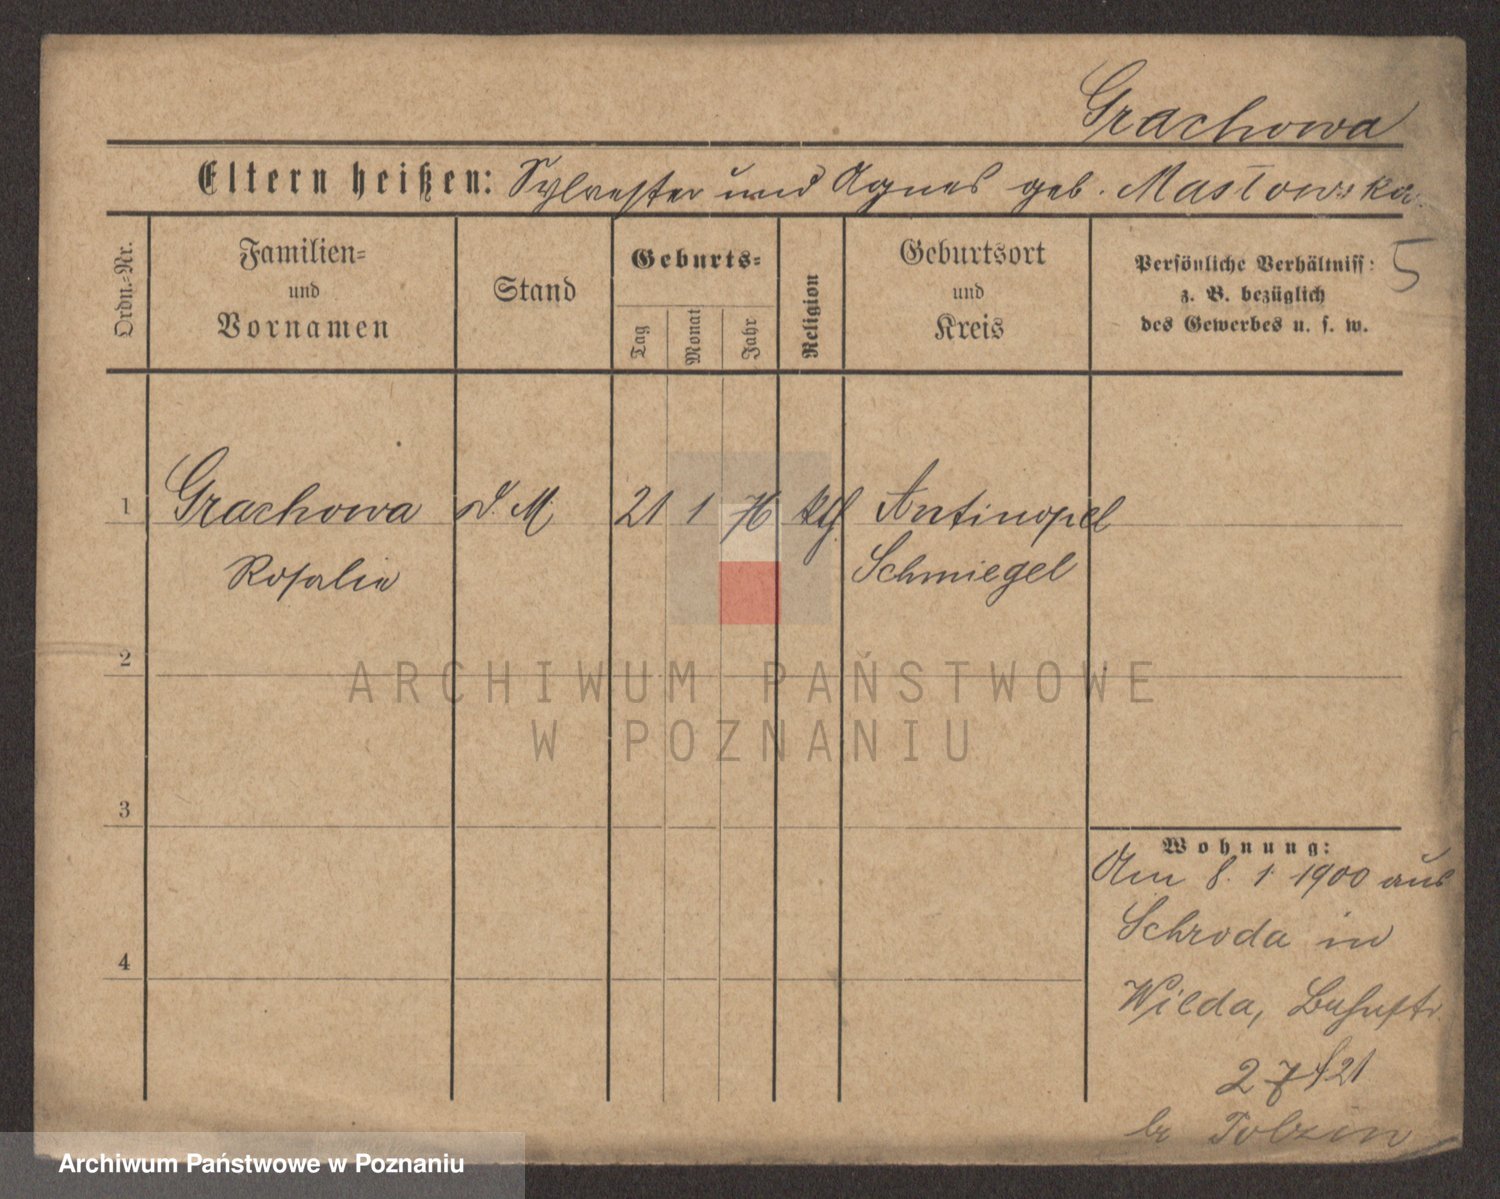 Grachowa
Eltern heißen: Sylvester und Agnes geb. Masłowska
Ordn.-Nr.
Familien-
und
Vornamen
Stand
Geburts-
Tag
Monat
Jahr
Religion
Geburtsort
und
Kreis
Persönliche Verhältniss:
z. B. bezüglich
des Gewerbes u. s. w.
5
1 Grachowa d. M. 21 1 76 kth. Antinopel
Rosalie Schmiegel
2
ARCHIWUM PAŃSTWOWE
W POZNANIU
3
Wohnung:
Am 8. 1. 1900 aus
Schroda in
4
Wilda, Bahnstr.
27/21
Archiwum Państwowe w Poznaniu